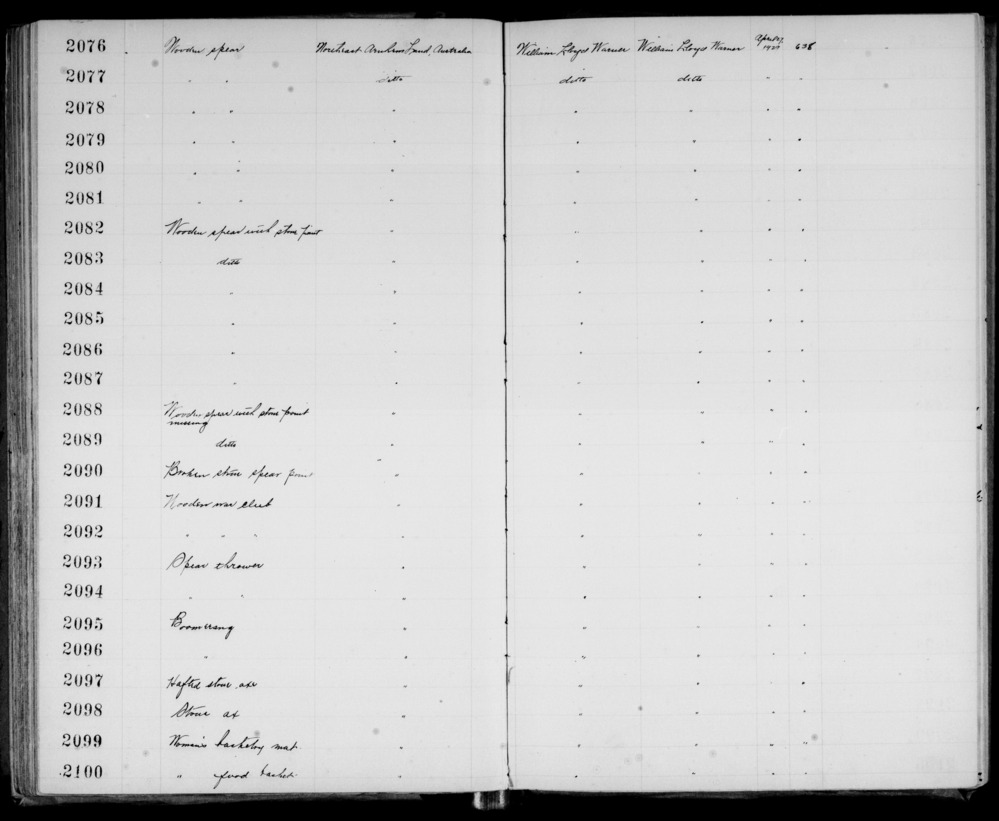 2076 Wooden spear Northeast Arnhem Land, Australia William Lloyd Warner William Lloyd Warner
2077 " " ditto ditto ditto " "
2078 " " " " " " "
2079 " " " " " " "
2080 " " " " " " "
2081 " " " " " " "
2082 Wooden spear with stone point " " " " "
2083 ditto " " " " "
2084 " " " " " "
2085 " " " " " "
2086 " " " " " "
2087 " " " " " "
2088 Wooden spear with stone point " " " " "
missing
2089 ditto " " " " "
2090 Broken stone spear point " " " " "
2091 Wooden war club " " " " "
2092 " " " " " " " "
2093 Spear thrower " " " " "
2094 " " " " " " "
2095 Boomerang " " " " "
2096 " " " " " "
2097 Hafted stone axe " " " " "
2098 Stone ax " " " " "
2099 Woman's basketry mat " " " " "
2100 " food basket " " " " "